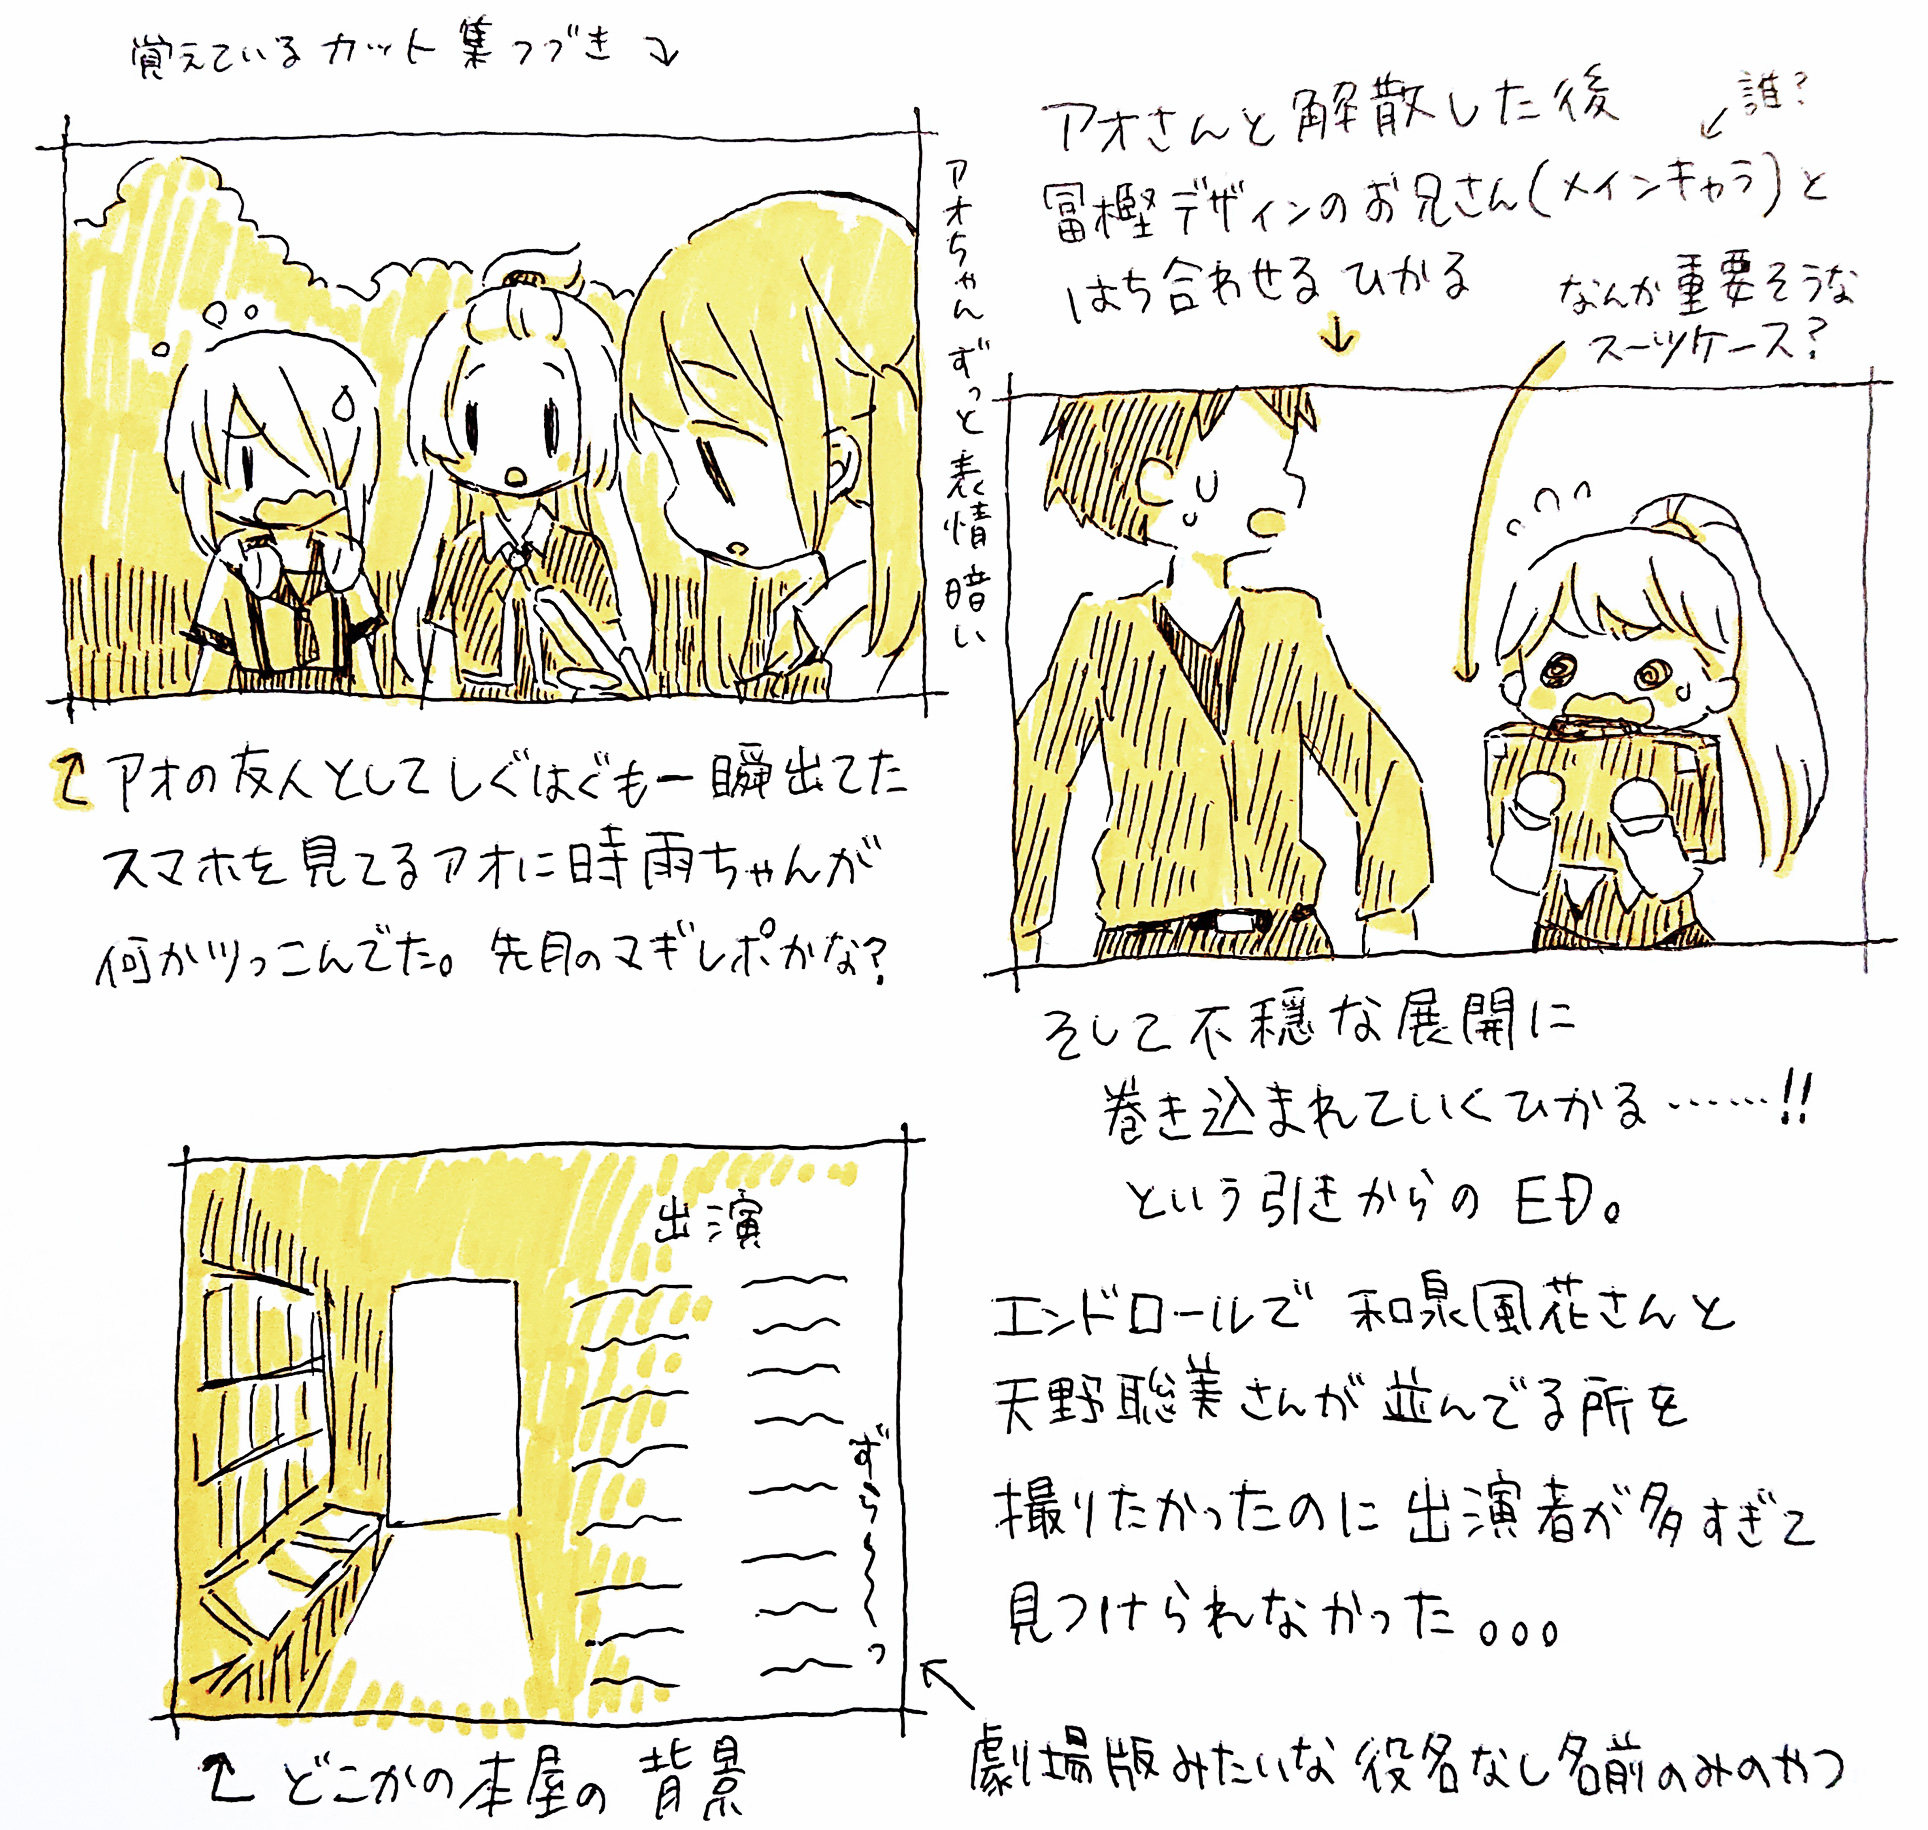 覚えているカット集つづき
アオちゃんずっと表情暗い
アオの友人としてしぐはぐも一瞬出てた
スマホを見てるアオに時雨ちゃんが
何かツっこんでた。先月のマギレポかな?
アオさんと解散した後
誰?
冨樫デザインのお兄さん(メインキャラ)と
はち合わせるひかる
なんか重要そうな
スーツケース?
そして不穏な展開に
巻き込まれていくひかる……!!
という引きからのED。
エンドロールで和泉風花さんと
天野聡美さんが並んでる所を
撮りたかったのに出演者が多すぎて
見つけられなかった。。。
出演
ずら〜〜〜っ
どこかの本屋の背景
劇場版みたいな役名なし名前のみのやつ